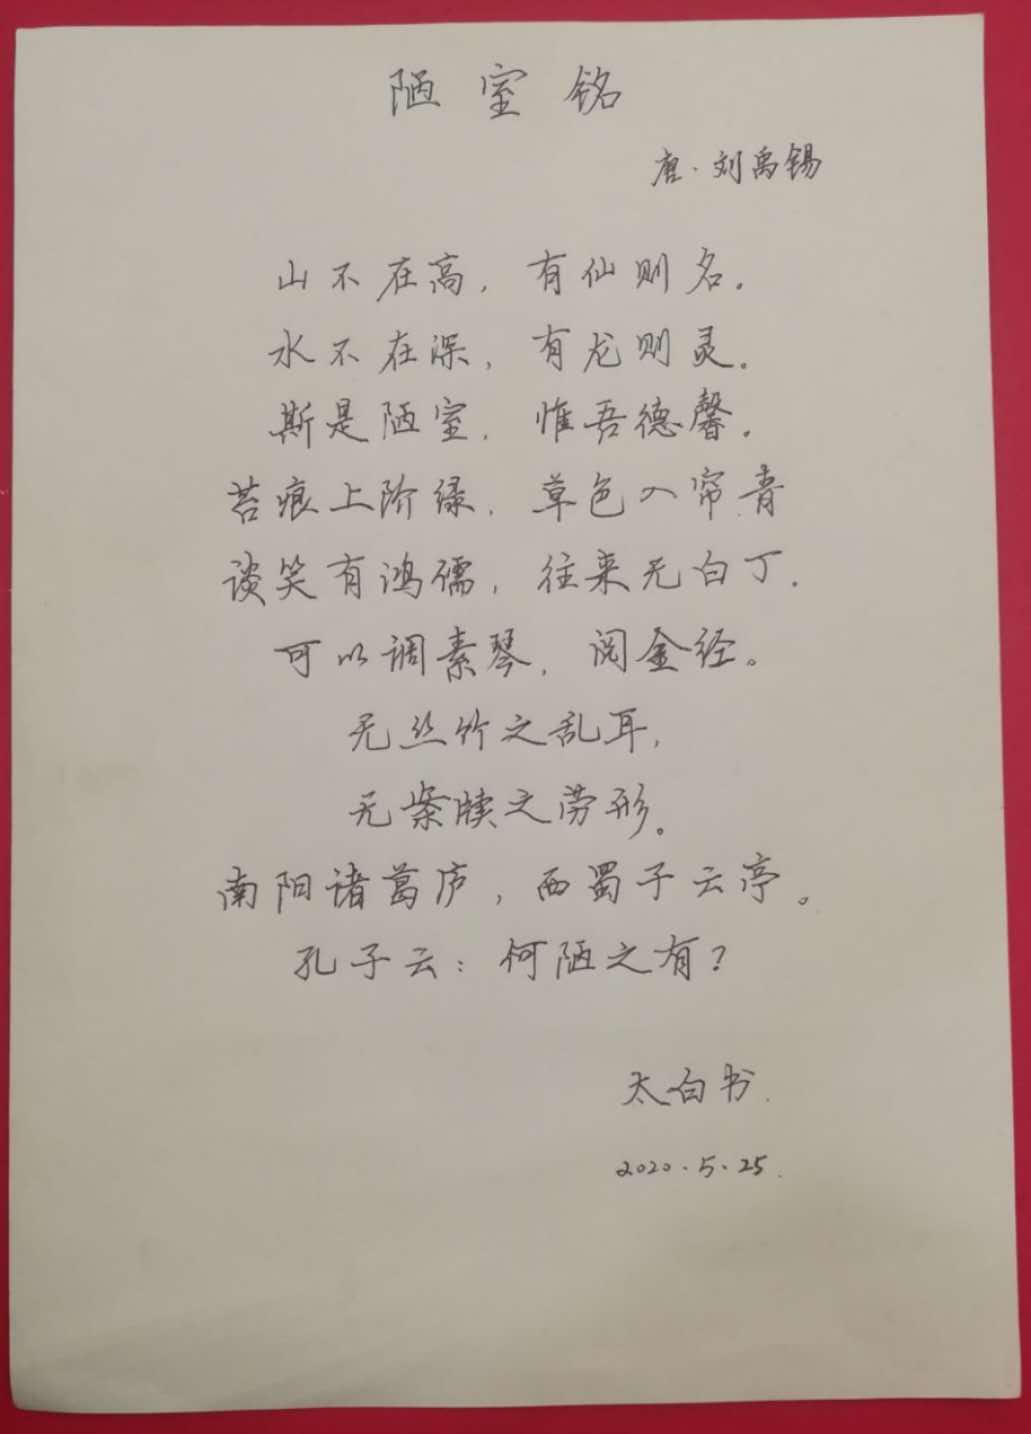 陋室铭
唐·刘禹锡
山不在高，有仙则名。
水不在深，有龙则灵。
斯是陋室，惟吾德馨。
苔痕上阶绿，草色入帘青
谈笑有鸿儒，往来无白丁。
可以调素琴，阅金经。
无丝竹之乱耳，
无案牍之劳形。
南阳诸葛庐，西蜀子云亭。
孔子云：何陋之有？
太白书.
2020.5.25.